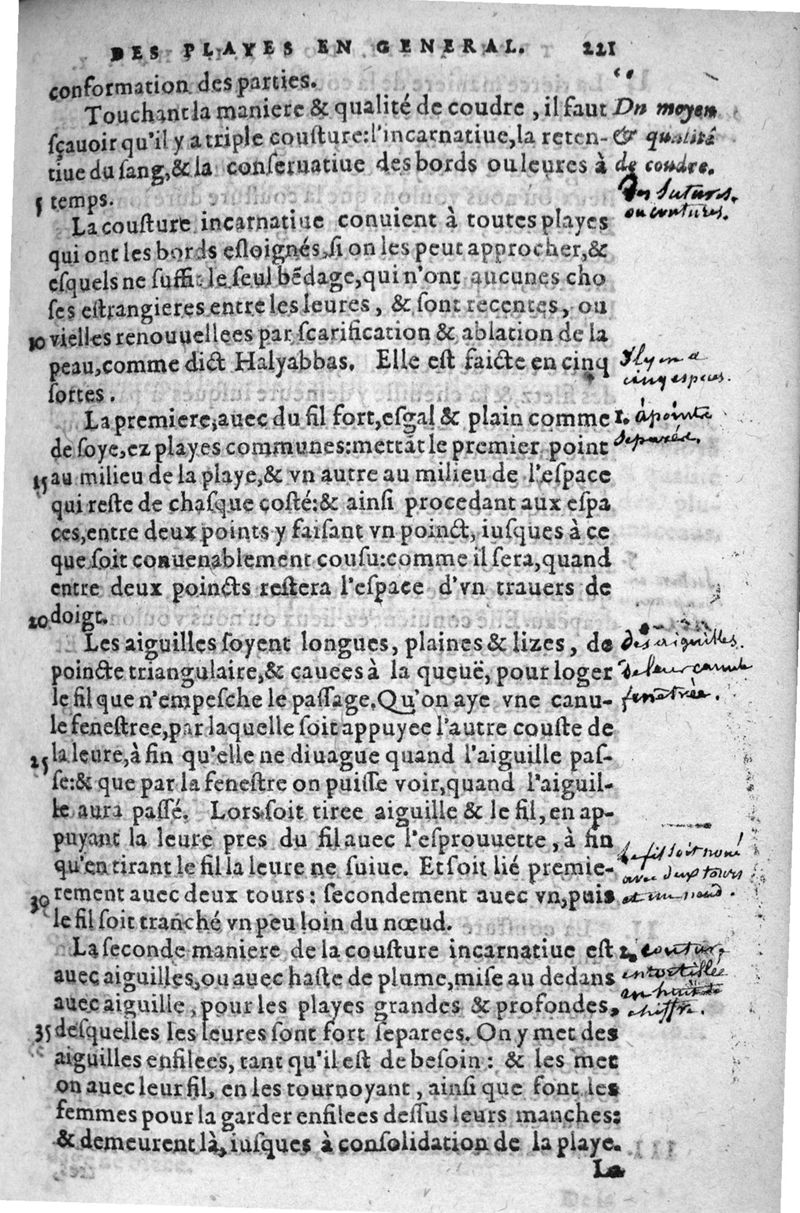 DES PLAYES EN GENERAL. 221
conformation des parties.
Touchant la maniere & qualité de coudre, il faut
sçauoir qu'il y a triple cousture: l'incarnatiue, la reten-
tiue du sang, & la conseruatiue des bords ou leures à
5 temps.
Du moyen
& qualité
de coudre.
Des sutures.
ou coutures.
La cousture incarnatiue conuient à toutes playes
qui ont les bords esloignés, si on les peut approcher, &
esquels ne suffit le seul bēdage, qui n'ont aucunes cho
ses estrangieres entre les leures, & sont recentes, ou
10 vielles renouuellees par scarification & ablation de la
peau, comme dict Halyabbas. Elle est faicte en cinq
sortes.
Il y en a
cinq especes.
La premiere, auec du fil fort, esgal & plain comme
de soye, ez playes communes: mettāt le premier point
15 au milieu de la playe, & vn autre au milieu de l'espace
qui reste de chasque costé: & ainsi procedant aux espa
ces, entre deux points y faisant vn poinct, iusques à ce
que soit conuenablement cousu: comme il sera, quand
entre deux poincts restera l'espace d'vn trauers de
20 doigt.
1. à points
separés.
Les aiguilles soyent longues, plaines & lizes, de
poincte triangulaire, & cauees à la queuë, pour loger
le fil que n'empesche le passage. Qu'on aye vne canu-
le fenestree, par laquelle soit appuyee l'autre couste de
25 la leure, à fin qu'elle ne diuague quand l'aiguille pas-
se: & que par la fenestre on puisse voir, quand l'aiguil-
le aura passé. Lors soit tiree aiguille & le fil, en ap-
puyant la leure pres du fil auec l'esprouuette, à fin
qu'en tirant le fil la leure ne suiue. Et soit lié premie-
30 rement auec deux tours: secondement auec vn, puis
le fil soit tranché vn peu loin du nœud.
des aiguilles.
de leur canule
fenetrée.
le fil soit noué
avec deux tours
et un nœud.
La seconde maniere de la cousture incarnatiue est
auec aiguilles, ou auec haste de plume, mise au dedans
auec aiguille, pour les playes grandes & profondes,
35 desquelles les leures sont fort separees. On y met des
aiguilles enfilees, tant qu'il est de besoin: & les met
on auec leur fil, en les tournoyant, ainsi que font les
femmes pour la garder enfilees dessus leurs manches:
& demeurent là, iusques à consolidation de la playe.
2. coutur.
entortillée
en huit de
chiffre.
La